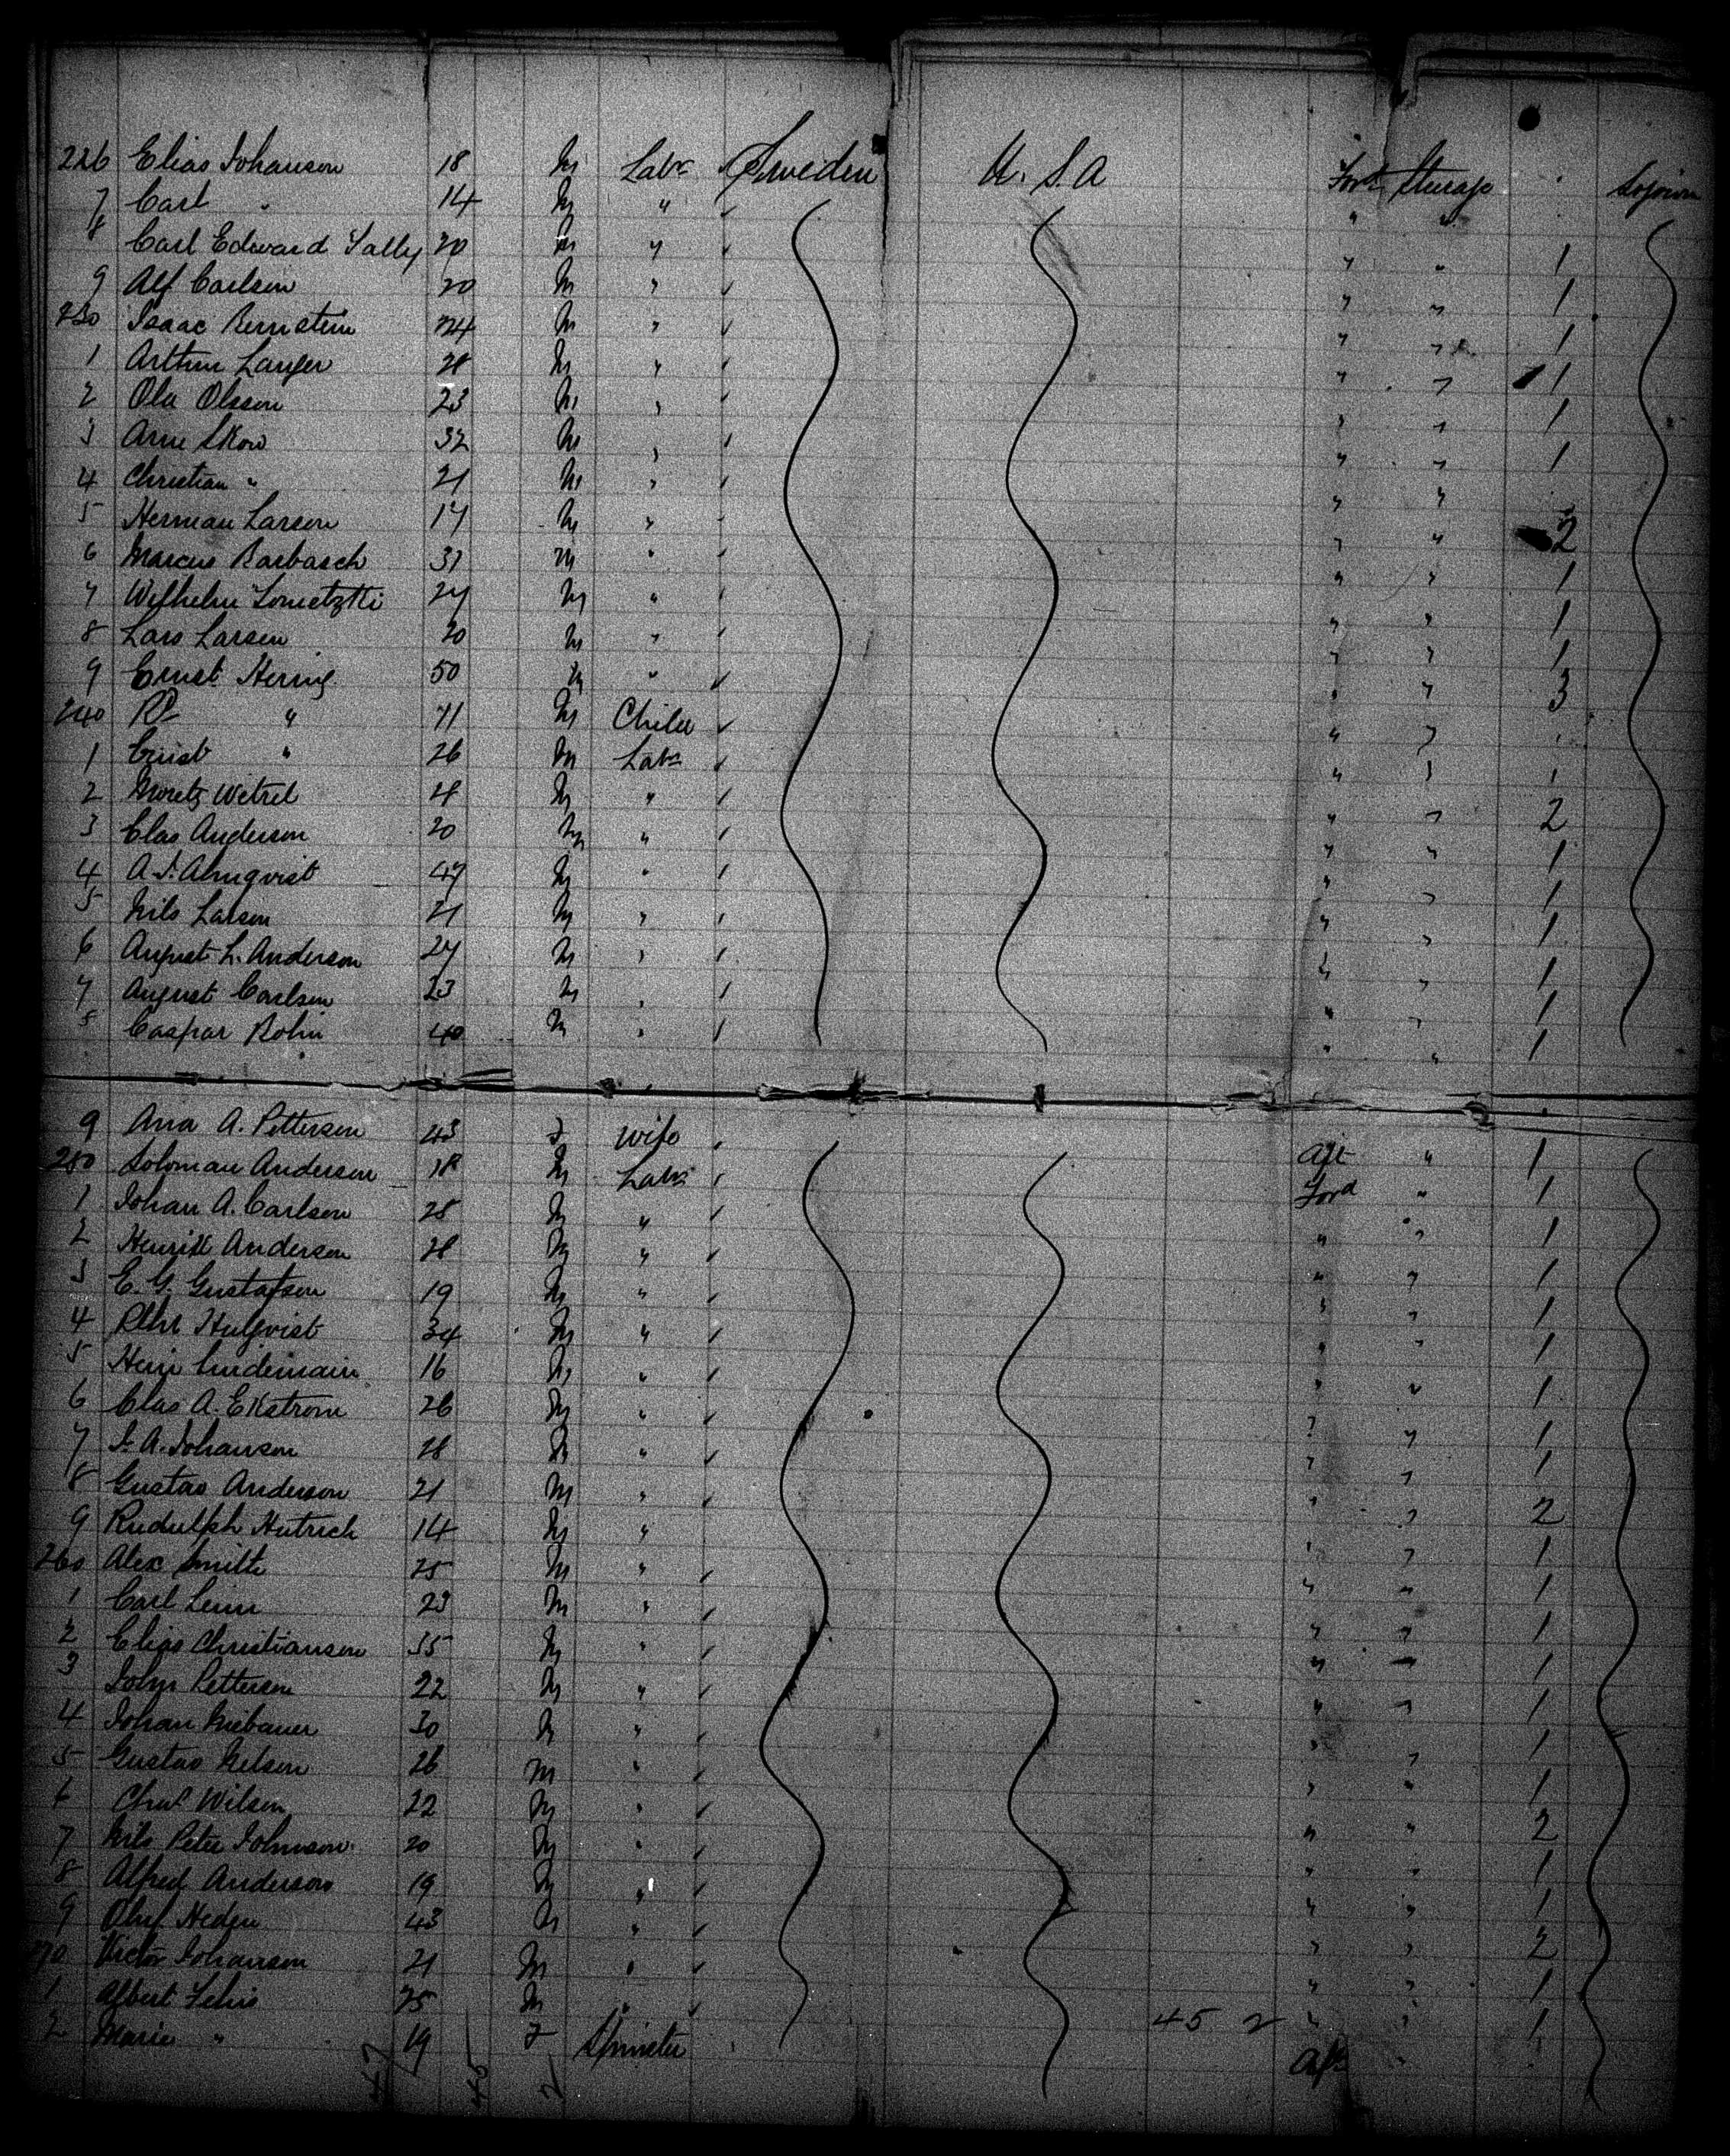 226 Elias Johanson 18 M Labr Sweden U.S.A Ford Steerage Sojourn
7 Carl " 14 M " " "
8 Carl Edward Sally 20 M " " " 1
9 Alf Carlson 20 M " " " 1
230 Isaac Bernstein 24 M " " " 1
1 Arthur Langer 28 M " " " 1
2 Ola Olsson 23 M " " " 1
3 Arne Skow 32 M " " " 1
4 Christian " 21 M " " "
5 Herman Larson 17 M " " " 2
6 Marcus Barbasch 31 M " " " 1
7 Wilhelm 27 M " " " 1
8 Lars Larsen 20 M " " " 1
9 Ernst Hering 50 M " " " 3
240 " 11 M Child " "
1 Ernst " 26 M Labr " "
2 Moretz Wetzel 28 M " " " 2
3 Clas Anderson 20 M " " " 1
4 A. J. Almqvist 47 M " " " 1
5 Nils Larson 21 M " " " 1
6 August L. Anderson 27 M " " " 1
7 August Carlson 23 M " " " 1
8 Caspar Bohn 40 M " " " 1
9 Ana A. Petterson 43 F Wife Aft " 1
250 Soloman Anderson 18 M Labr Ford " 1
1 Johan A. Carlson 28 M " " " 1
2 Henrik Anderson 28 M " " " 1
3 E. G. Gustafson 19 M " " " 1
4 Hulqvist 34 M " " " 1
5 Lindemain 16 M " " " 1
6 Clas A. Ekstrom 26 M " " " 1
7 J. A. Johanson 28 M " " " 1
8 Gustav Anderson 21 M " " " 2
9 Rudulph Hutrich 14 M " " " 1
260 Alex Smith 25 M " " " 1
1 Carl Leim 23 M " " " 1
2 Elias Christianson 35 M " " " 1
3 John Petterson 22 M " " " 1
4 Johan Niebauer 30 M " " " 1
5 Gustav Nelson 26 M " " " 1
6 Chas Wilson 22 M " " " 2
7 Nils Peter Johnson 20 M " " " 1
8 Alfred Anderson 19 M " " " 1
9 Oluf Heden 43 M " " " 2
70 Victor Johanson 21 M " " " 1
1 Albert 25 M " 45 2 " " 1
2 Marie " 19 F Spinster Aft "
47 45 2